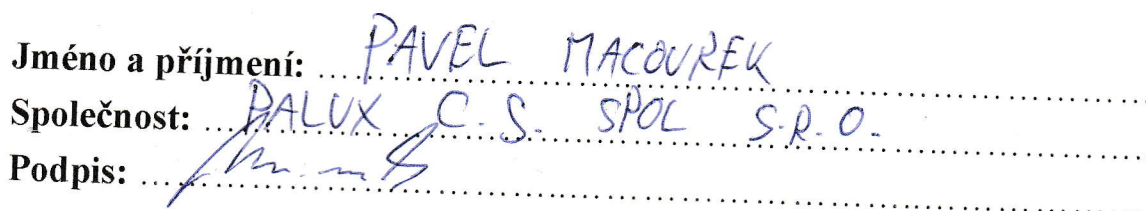 Jméno a příjmení: PAVEL MACOUREK
Společnost: PALUX C.S. SPOL S.R.O.
Podpis: